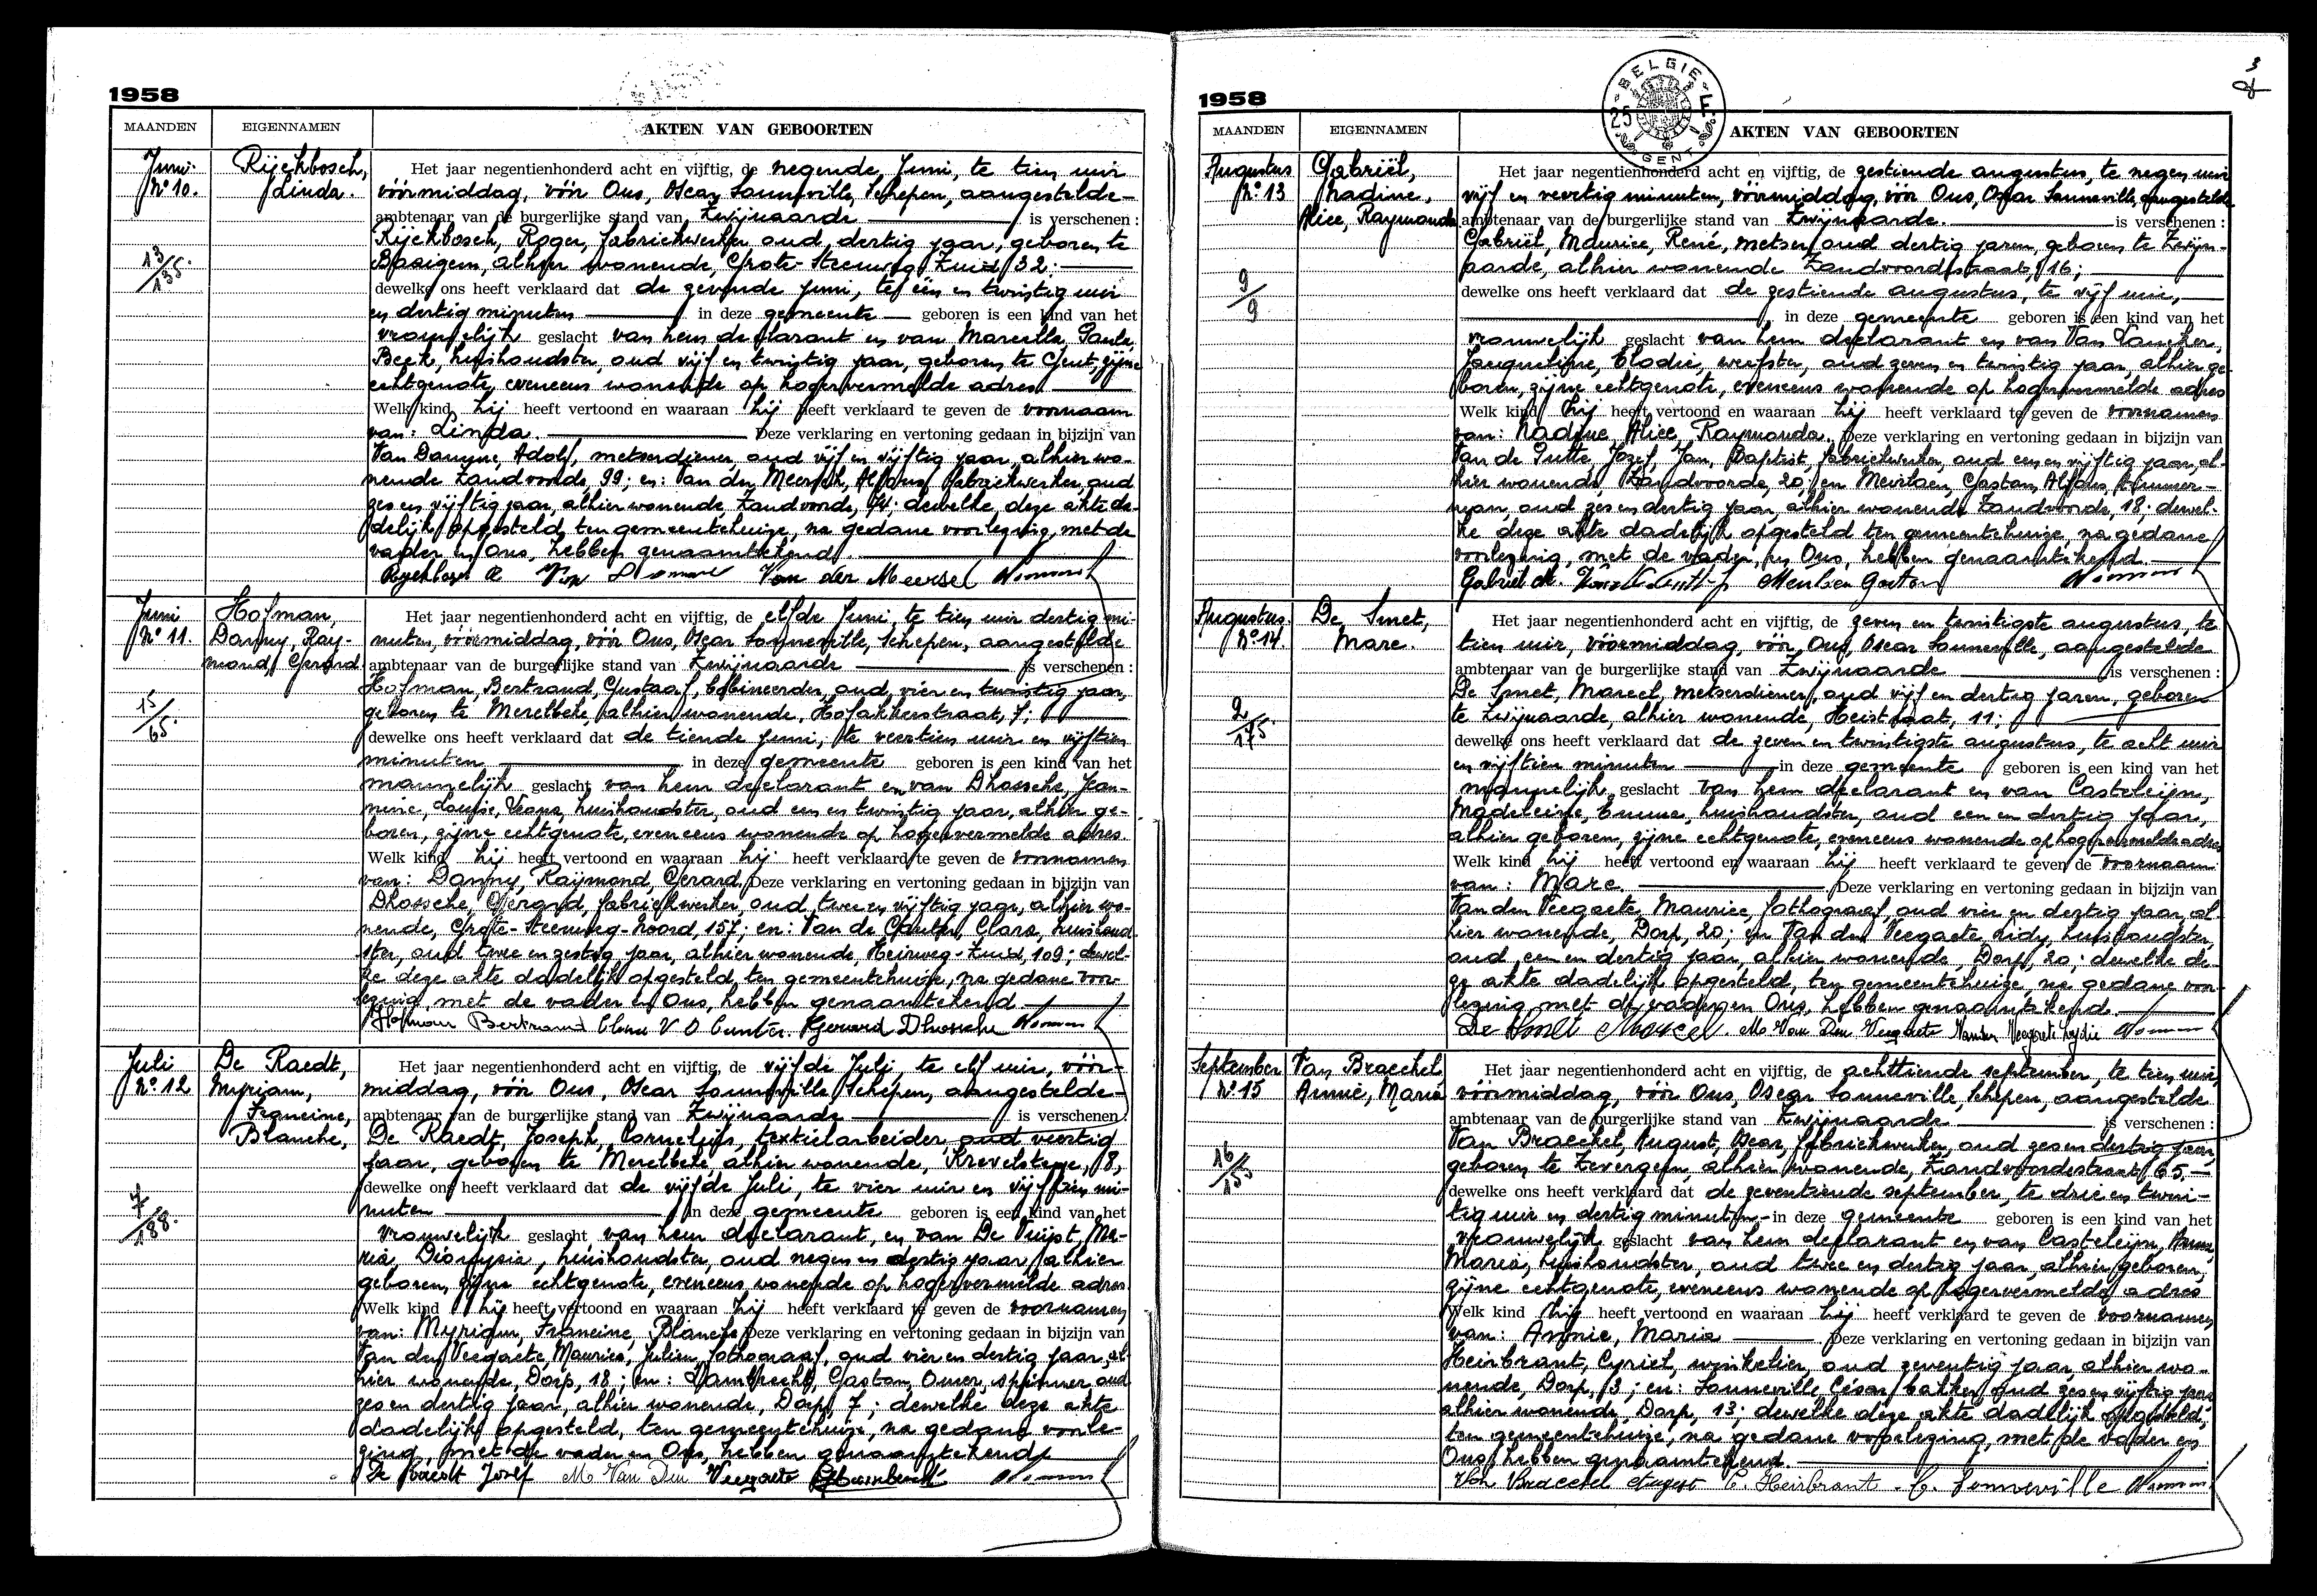 1958
MAANDEN EIGENNAMEN AKTEN VAN GEBOORTEN
Juni Nº 10.
Rijckbosch, Linda.
13/135.
Het jaar negentienhonderd acht en vijftig, de negende Juni, te tien uur
vóórmiddag, vóór Ons, Oscar Sonneville, Schepen, aangestelde
ambtenaar van de burgerlijke stand van Zwijnaarde is verschenen :
Rijckbosch, Roger, fabriekwerker oud dertig jaar, geboren te
Basigem, alhier wonende, Grote-Steenweg Zuid 32:
dewelke ons heeft verklaard dat de zevende juni, te één en twintig uur
en dertig minuten in deze gemeente geboren is een kind van het
vrouwelijk geslacht van hem declarant en van Marcella, Paula
Beek, huishoudster, oud vijf en twintig jaar, geboren te Gent, zijne
echtgenote, eveneens wonende op hogervermelde adres
Welk kind hij heeft vertoond en waaraan hij heeft verklaard te geven de voornaam
van: Linda. Deze verklaring en vertoning gedaan in bijzijn van
Van Damme, Adolf, metserdiener, oud vijf en vijftig jaar, alhier wo-
nende Zandvoorde, 99; en: Van der Meersch, Alfons, fabriekwerker, oud
zes en vijftig jaar, alhier wonende, Zandvoorde, ; dewelke, deze akte da-
delijk opgesteld, ten gemeentehuize, na gedane voorlezing, met de
vader en Ons, hebben genaamtekend.
Rijckbosch R Van Damme Van der Meersel
Juni Nº 11.
Hofman, Danny, Ray-
mond, Gerard
15/65.
Het jaar negentienhonderd acht en vijftig, de elfde Juni, te tien uur dertig mi-
nuten, vóórmiddag, vóór Ons, Oscar Sonneville, Schepen, aangestelde
ambtenaar van de burgerlijke stand van Zwijnaarde is verschenen :
Hofman, Bertrand, Gustaaf, bobineerder, oud vier en twintig jaar,
geboren te Merelbeke, alhier wonende, Hofakkerstraat, 7;
dewelke ons heeft verklaard dat de tiende juni, te veertien uur en vijftien
minuten in deze gemeente geboren is een kind van het
mannelijk geslacht van hem declarant en van Dhossche, Jean-
nine, Louise, huishoudster, oud een en twintig jaar, alhier ge-
boren, zijne echtgenote, eveneens wonende op hogervermelde adres.
Welk kind hij heeft vertoond en waaraan hij heeft verklaard te geven de voornamen
van: Danny, Raymond, Gerard. Deze verklaring en vertoning gedaan in bijzijn van
Dhossche, Gerard, fabriekwerker, oud twee en vijftig jaar, alhier wo-
nende, Grote-Steenweg-Noord, 157; en: Van de Clara, huishoud-
ster, oud twee en zestig jaar, alhier wonende, Heirweg-Zuid, 109; dewel-
ke deze akte dadelijk opgesteld, ten gemeentehuize, na gedane voor-
lezing, met de vader en Ons, hebben genaamtekend.
Hofman Bertrand Gerard Dhossche
Juli Nº 12
De Raedt, Myriam,
Francine, Blanche,
7/188.
Het jaar negentienhonderd acht en vijftig, de vijfde Juli, te elf uur, vóór-
middag, vóór Ons, Oscar Sonneville Schepen, aangestelde
ambtenaar van de burgerlijke stand van Zwijnaarde is verschenen :
De Raedt, Joseph, Cornelijs, textielarbeider, oud veertig
jaar, geboren te Merelbeke, alhier wonende, Krevelstege, 8,
dewelke ons heeft verklaard dat de vijfde Juli, te vier uur en vijftien mi-
nuten in deze gemeente geboren is een kind van het
vrouwelijk geslacht van hem declarant, en van De Vuijst, Ma-
ria, Dionysia, huishoudster, oud negen en dertig jaar, alhier
geboren, zijne echtgenote, eveneens wonende op hogervermelde adres
Welk kind hij heeft vertoond en waaraan hij heeft verklaard te geven de voornamen
van: Myriam, Francine, Blanche Deze verklaring en vertoning gedaan in bijzijn van
Van den Veegaete, Maurice, Julien, fotograaf, oud vier en dertig jaar, al-
hier wonende, Dorp, 18; en: Lambrecht, Gaston, Omer, spinner, oud
zes en dertig jaar, alhier wonende, Dorp, 7; dewelke deze akte
dadelijk opgesteld, ten gemeentehuize, na gedane voorle-
zing, met de vader en Ons, hebben genaamtekend
De Raedt Josef M Van Den Veegaete
3
BELGIE GENT 25
1958
MAANDEN EIGENNAMEN AKTEN VAN GEBOORTEN
Augustus Nº 13
Gabriël, Nadine,
Alice, Raymonda
9/9
Het jaar negentienhonderd acht en vijftig, de zestiende augustus, te negen uur
vijf en veertig minuten, vóórmiddag, vóór Ons, Oscar Sonneville, aangestelde
ambtenaar van de burgerlijke stand van Zwijnaarde. is verschenen :
Gabriël, Maurice, René, metser, oud dertig jaren, geboren te Zwijn-
aarde, alhier wonende Zandvoordestraat, 16;
dewelke ons heeft verklaard dat de zestiende augustus, te vijf uur,
in deze gemeente geboren is een kind van het
vrouwelijk geslacht van hem declarant en van Van Vancker,
Jacqueline, Elodie, weefster, oud zeven en twintig jaar, alhier ge-
boren, zijne echtgenote, eveneens wonende op hogervermelde adres
Welk kind hij heeft vertoond en waaraan hij heeft verklaard te geven de voornamen
van: Nadine, Alice Raymonda. Deze verklaring en vertoning gedaan in bijzijn van
Van de Putte, Jozef, Jan, Baptist, fabriekwerker, oud een en vijftig jaar, al-
hier wonende, Zandvoorde, 20; en Meulsen, Gaston, Alfons, timmer-
man, oud zes en dertig jaar, alhier wonende Zandvoorde, 18; dewel-
ke deze akte dadelijk opgesteld ten gemeentehuize, na gedane
voorlezing, met de vader, en Ons, hebben genaamtekend.
Gabriel M. Meulsen Gaston
Augustus. Nº 14.
De Smet, Marc.
2/175.
Het jaar negentienhonderd acht en vijftig, de zeven en twintigste augustus, te
tien uur, vóórmiddag, vóór Ons, Oscar Sonneville, aangestelde
ambtenaar van de burgerlijke stand van Zwijnaarde is verschenen :
De Smet, Marcel, metserdiener, oud vijf en dertig jaren, geboren
te Zwijnaarde, alhier wonende, Heiststraat, 11;
dewelke ons heeft verklaard dat de zeven en twintigste augustus, te acht uur
en vijftien minuten in deze gemeente geboren is een kind van het
mannelijk geslacht van hem declarant en van Casteleijn,
Madeleine, Emma, huishoudster, oud een en dertig jaar,
alhier geboren, zijne echtgenote, eveneens wonende op hogervermelde adres
Welk kind hij heeft vertoond en waaraan hij heeft verklaard te geven de voornaam
van: Marc. Deze verklaring en vertoning gedaan in bijzijn van
Van den Veegaete, Maurice, fotograaf, oud vier en dertig jaar, al-
hier wonende, Dorp, 20; en Van den Veegaete Lidy, huishoudster,
oud een en dertig jaar, alhier wonende, Dorp, 20; dewelke de-
ze akte dadelijk opgesteld, ten gemeentehuize, na gedane voor-
lezing, met de vader en Ons, hebben genaamtekend.
De Smet Marcel. M Van Den Veegaete Vanden Veegaete Lydie
September Nº 15
Van Braeckel Annie, Maria
16/155
Het jaar negentienhonderd acht en vijftig, de achttiende september, te tien uur,
vóórmiddag, vóór Ons, Oscar Sonneville, Schepen, aangestelde
ambtenaar van de burgerlijke stand van Zwijnaarde is verschenen :
Van Braeckel, August, Oscar, fabriekwerker, oud zes en dertig jaar,
geboren te Zevergem, alhier wonende, Zandvoordestraat, 65,
dewelke ons heeft verklaard dat de zeventiende september, te drie en twin-
tig uur en dertig minuten in deze gemeente geboren is een kind van het
vrouwelijk geslacht van hem declarant en van Casteleijn, Anna,
Maria, huishoudster, oud twee en dertig jaar, alhier geboren,
zijne echtgenote, eveneens wonende op hogervermelde adres
Welk kind hij heeft vertoond en waaraan hij heeft verklaard te geven de voornamen
van: Annie, Maria Deze verklaring en vertoning gedaan in bijzijn van
Heirbrant, Cyriel, winkelier, oud zeventig jaar, alhier wo-
nende, Dorp, 3; en: Sonneville, César, bakker, oud zes en vijftig jaar
alhier wonende, Dorp, 13; dewelke deze akte dadelijk opgesteld,
ten gemeentehuize, na gedane voorlezing, met de vader en
Ons, hebben genaamtekend.
Van Braeckel August C. Heirbrant. C. Sonneville